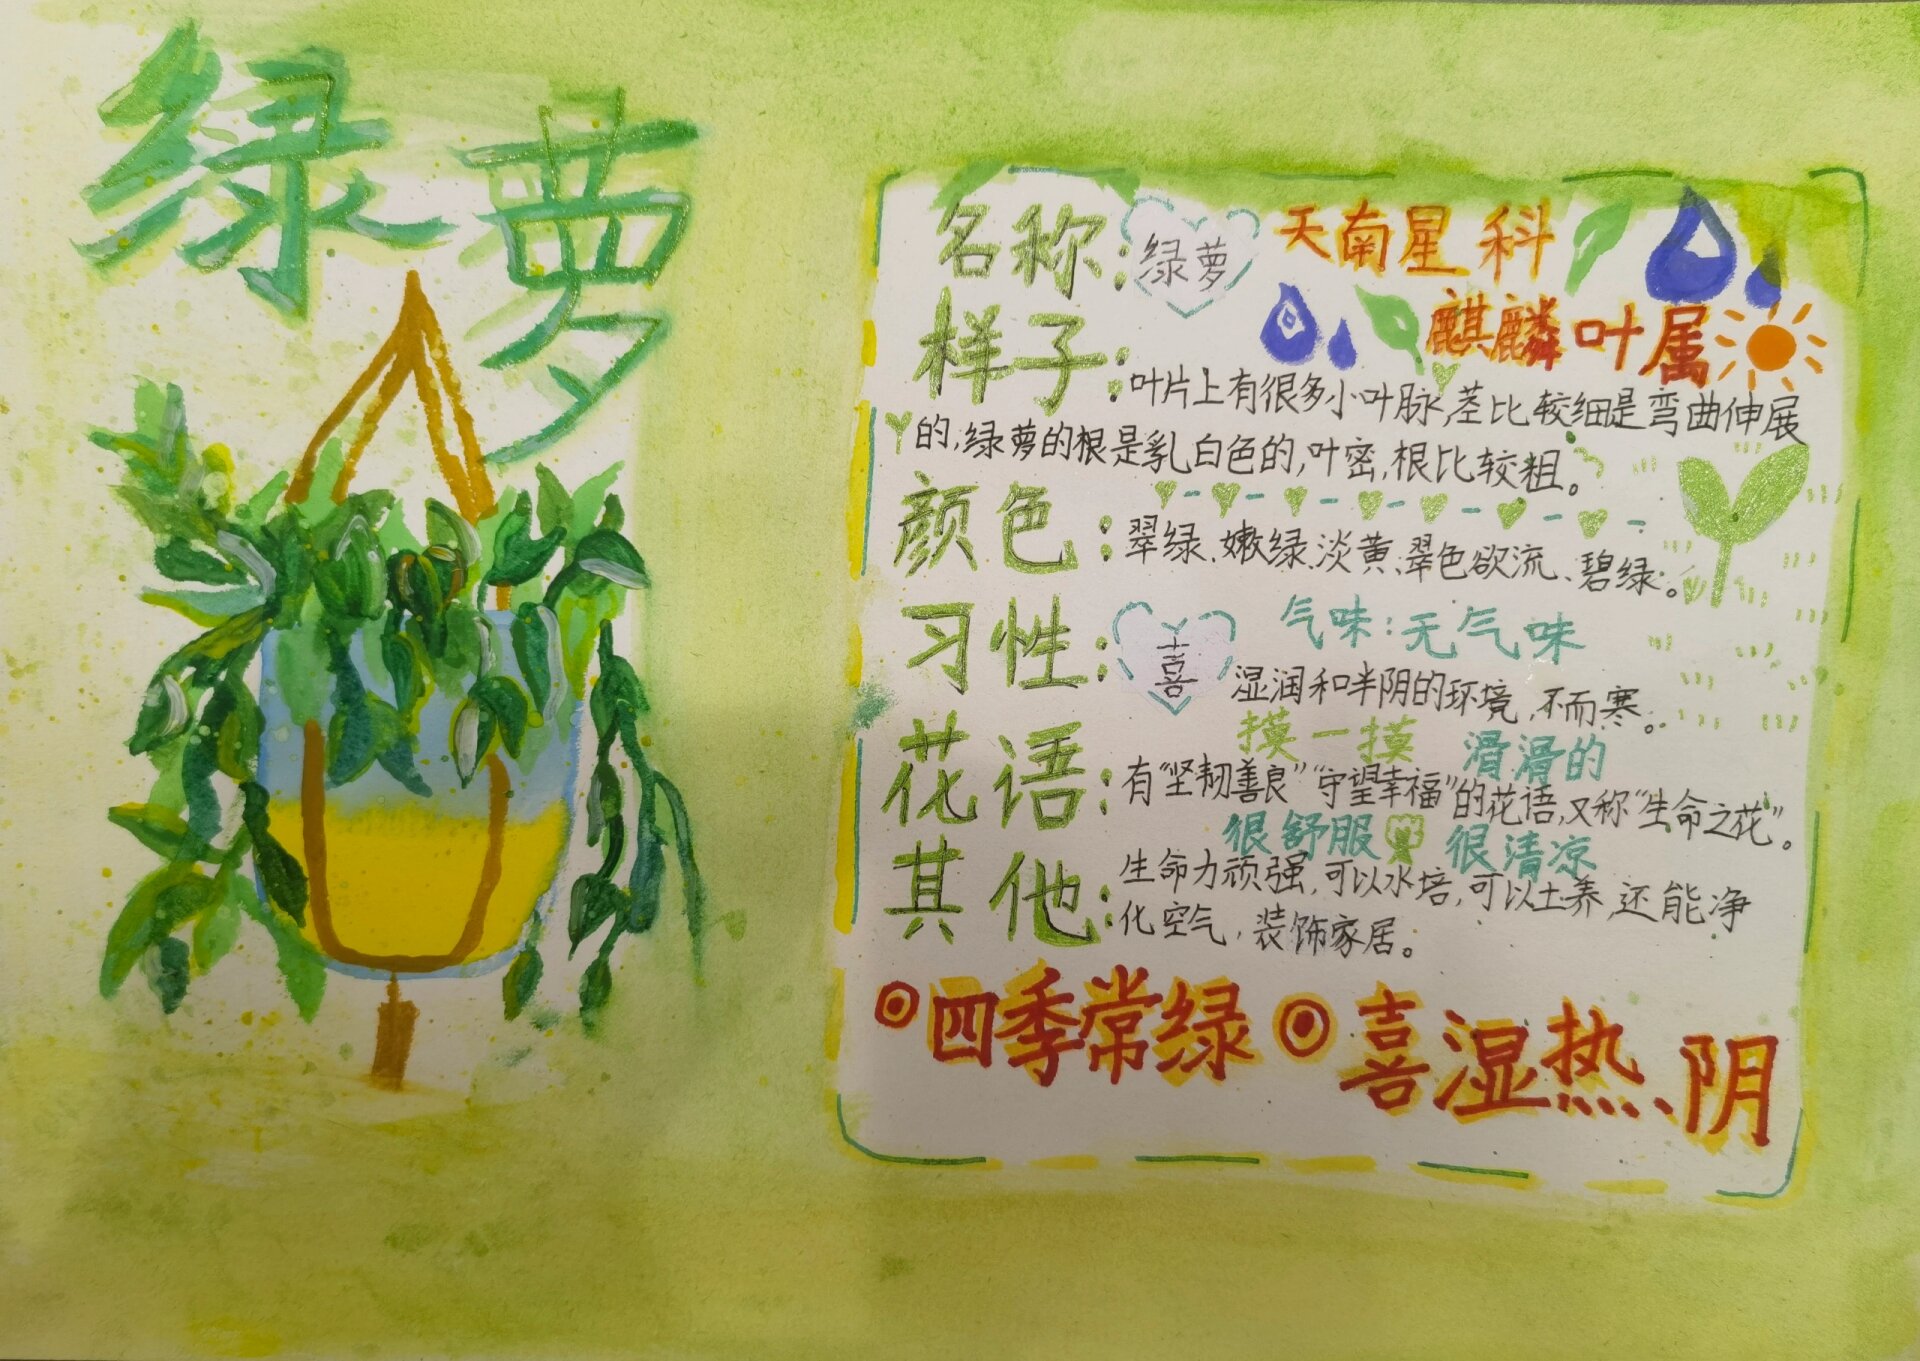 绿萝
名称：绿萝 天南星科
麒麟叶属
样子：叶片上有很多小叶脉，茎比较细是弯曲伸展
的，绿萝的根是乳白色的，叶密，根比较粗。
颜色：翠绿、嫩绿、淡黄、翠色欲流、碧绿。
气味：无气味
习性：喜湿润和半阴的环境，不而寒。
摸一摸 滑滑的
花语：有“坚韧善良”“守望幸福”的花语，又称“生命之花”。
很舒服 很清凉
其他：生命力顽强，可以水培，可以土养，还能净
化空气，装饰家居。
四季常绿 喜湿热、阴